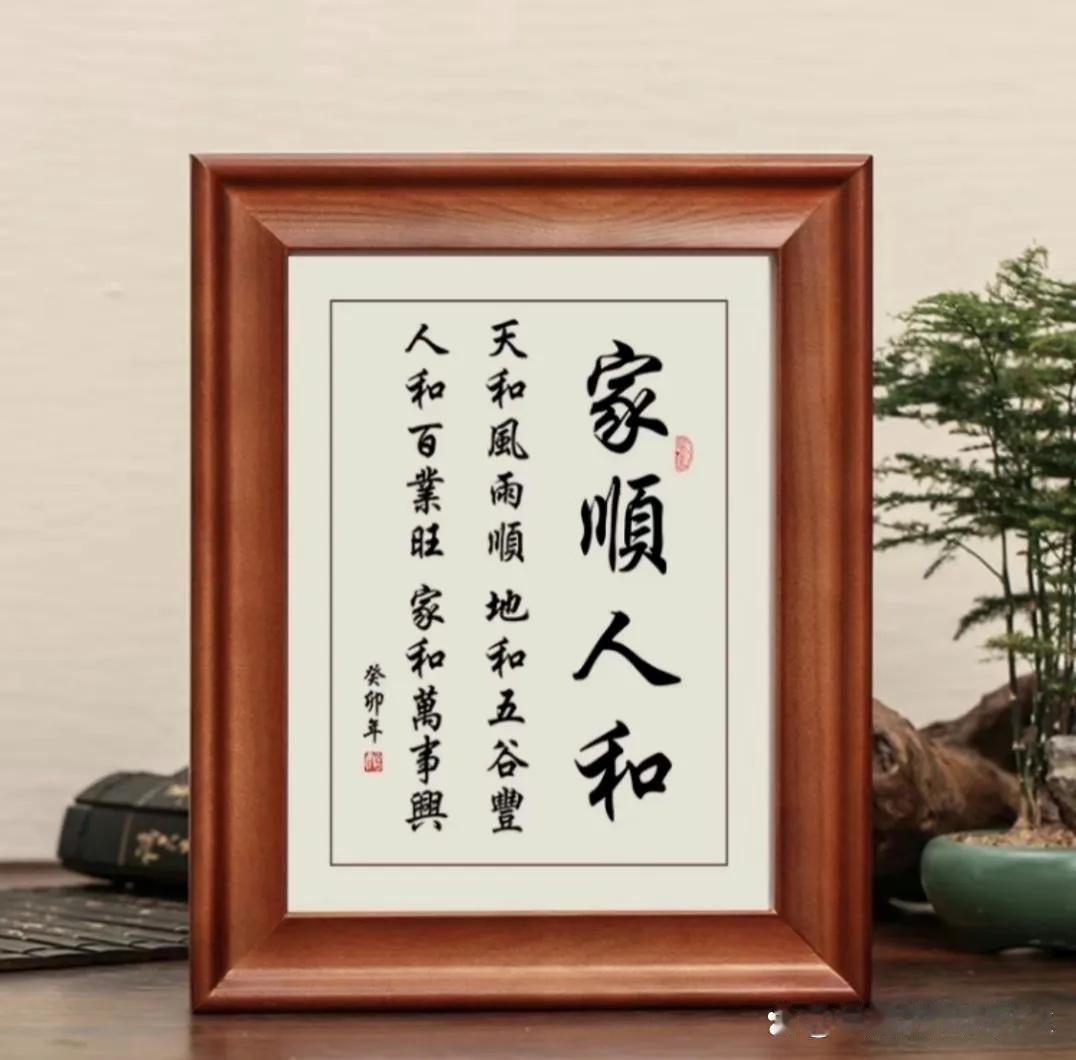 家順人和
天和風雨順 地和五谷豐
人和百業旺 家和萬事興
癸卯年